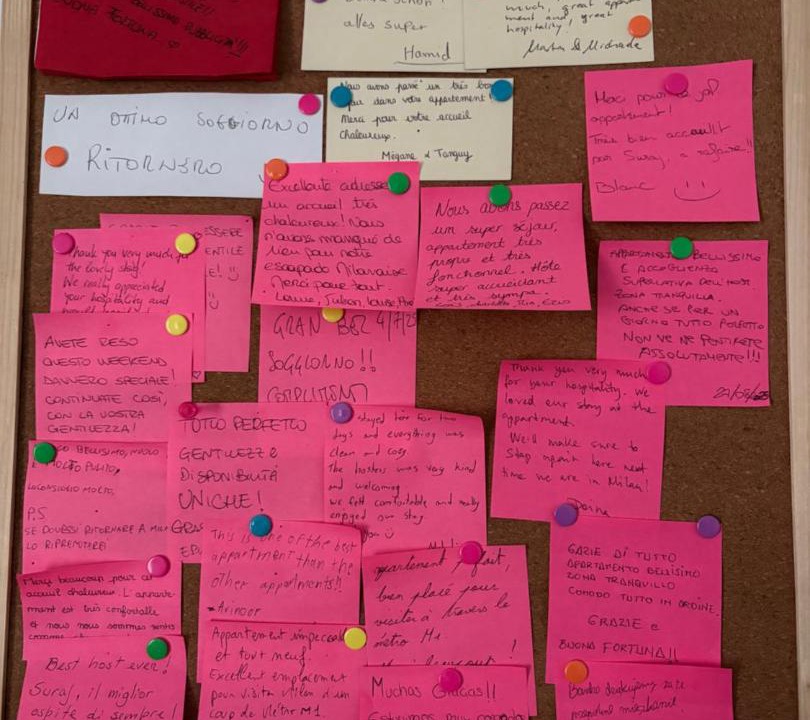 BUONA FORTUNA. ♡
alles super
Hamid
much, great
ment and, great
hospitality!
UN OTTIMO SOGGIORNO
RITORNERO
Nous avons passé un très bon
dans votre appartement!
Merci pour votre accueil
Chaloureux.
Mégane & Tanguy
appartement!
Très bien accueilli
par Suraj, a refaire!!
Blanc
Excellente adresse
un accueil très
chaloureux! Nous
n'avons manqué de
rien pour notre
escapade Milanaise
Merci pour tout.
Nous avons passez
un super séjour,
appartement très
propre et très
fonctionnel. Hôte
super accueillant
et très sympa
APPARTAMENTO BELLISSIMO
E ACCOGLIENZA
SUPERLATIVA DELL'HOST
ZONA TRANQUILLA.
ANCHE SE PER UN
GIORNO TUTTO PERFETTO
NON VE NE PENTIRETE
ASSOLUTAMENTE!!!
ESSERE
GENTILE
Thank you very much
the lovely stay!
We really appreciated
your hospitality and
GRAN BEL 4/7/25
SOGGIORNO!!
COMPLIMENTI
AVETE RESO
QUESTO WEEKEND
DAVVERO SPECIALE!
CONTINUATE COSÌ,
CON LA VOSTRA
GENTILEZZA!
Thank you very much
for your hospitality. We
loved our stay at the
appartment.
We'll make sure to
stay again here next
time we are in Milan!
TUTTO PERFETTO
GENTILEZZA
DISPONIBILITÀ
UNICHE!
stayed here for two
days and everything was
clean and cosy
The hosters was very kind
and welcoming
we felt comfortable and really
enjoyed our stay.
BELLISSIMO, NUOVO
E MOLTO PULITO,
LO CONSIGLIO MOLTO.
P.S.
SE DOVESSI RITORNARE A
LO RIPRENDEREI
This is one of the best
appartment than the
other appartments!!
GRAZIE DI TUTTO
APPARTAMENTO BELLISSIMO
ZONA TRANQUILLO
COMODO TUTTO IN ORDINE.
GRAZIE e
BUONA FORTUNA!!
Merci beaucoup pour cet
accueil chaleureux. L'apparte-
ment est très confortable
et nous nous sommes sentis
bien placé pour
visiter à travers le
métro M1.
Best host ever!
Suraj, il miglior
ospite di sempre!
Appartement impeccable
et tout neuf.
Excellent emplacement
pour visiter Milan d'un
coup de Métro M1
Muchas Gracias!!
Bardzo dziękujemy za